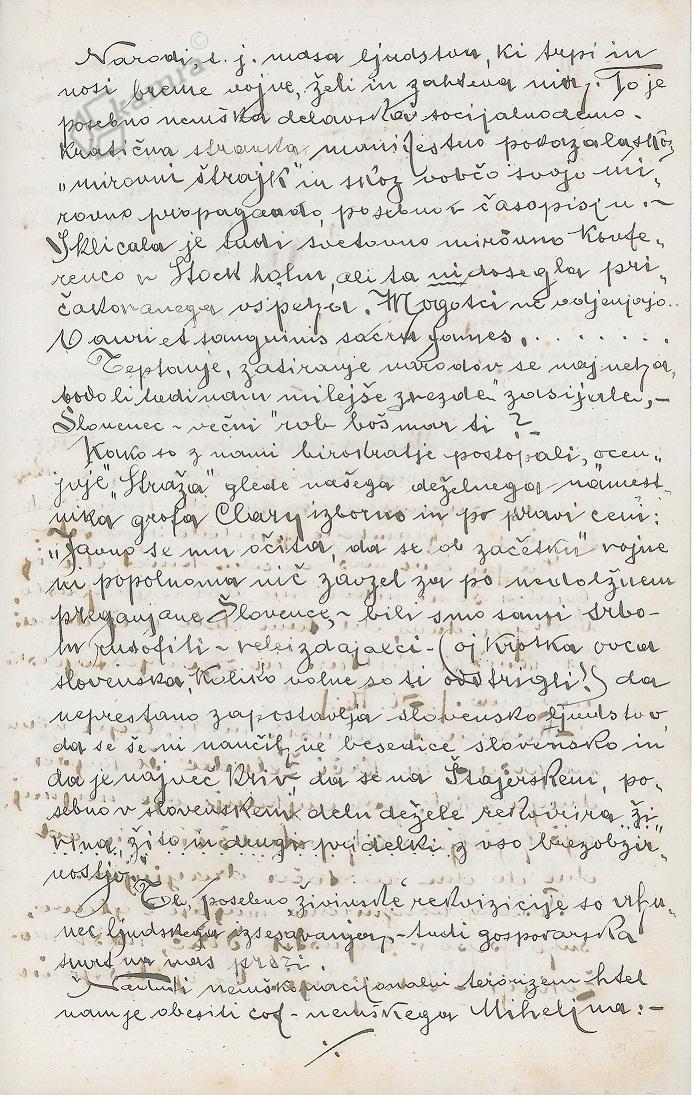 kamra©
Narodi, t. j. masa ljudstva, ki trpi in
nosi breme vojne, želi in zahteva mir. To je
posebno nemška delavska socijalnodemo-
kratična stranka, manifestno pokazala skoz
„mirovni štrajk" in skoz vobčo svojo mi„
rovno propagando, posebno v časopisju. -
Sklicala je tudi svetovno mirovno konfe„
renco v Stockholm, ali ta ni dosegla pri„
čakovanega vspeha. Mogotci ne odjenjajo..
O auri et sanguinis sacra fames, . . . . . . .
Teptanje, zatiranje narodov se naj neha,
bodo li tudi nam milejše zvezde" zasijale, -
Slovenec - večni" rob boš mar ti?
Kako so z nami birokratje postopali, ocen„
juje „Straža" glede našega deželnega namest„
nika grofa Clary izborno in po pravi ceni:
„Javno se mu očita, da se ob začetku vojne
ni popolnoma nič zavzel za po nedolžnem
preganjane Slovence, - bili smo sami srbo-
in rusofili - veleizdajalci - (oj krotka ovca
slovenska, koliko volne so ti odstrigli!) da
neprestano zapostavlja slovensko ljudstvo,
da se še ni naučil ne besedice slovensko in
da je največ kriv, da se na Štajerskem, po„
sebno v slovenskem delu dežele rekvirira ži„
vina, žito in drugi pridelki z vso brezobzir„
nostjo."
Te, posebno živinske rekvizicije so vrhu„
nec ljudskega izsesavanja, - tudi gospodarska
smrt na nas preži.
Na tudi nemškonacijonalni terorizem htel
nam je obesiti cof - nemškega Mihelj na: -
·/.